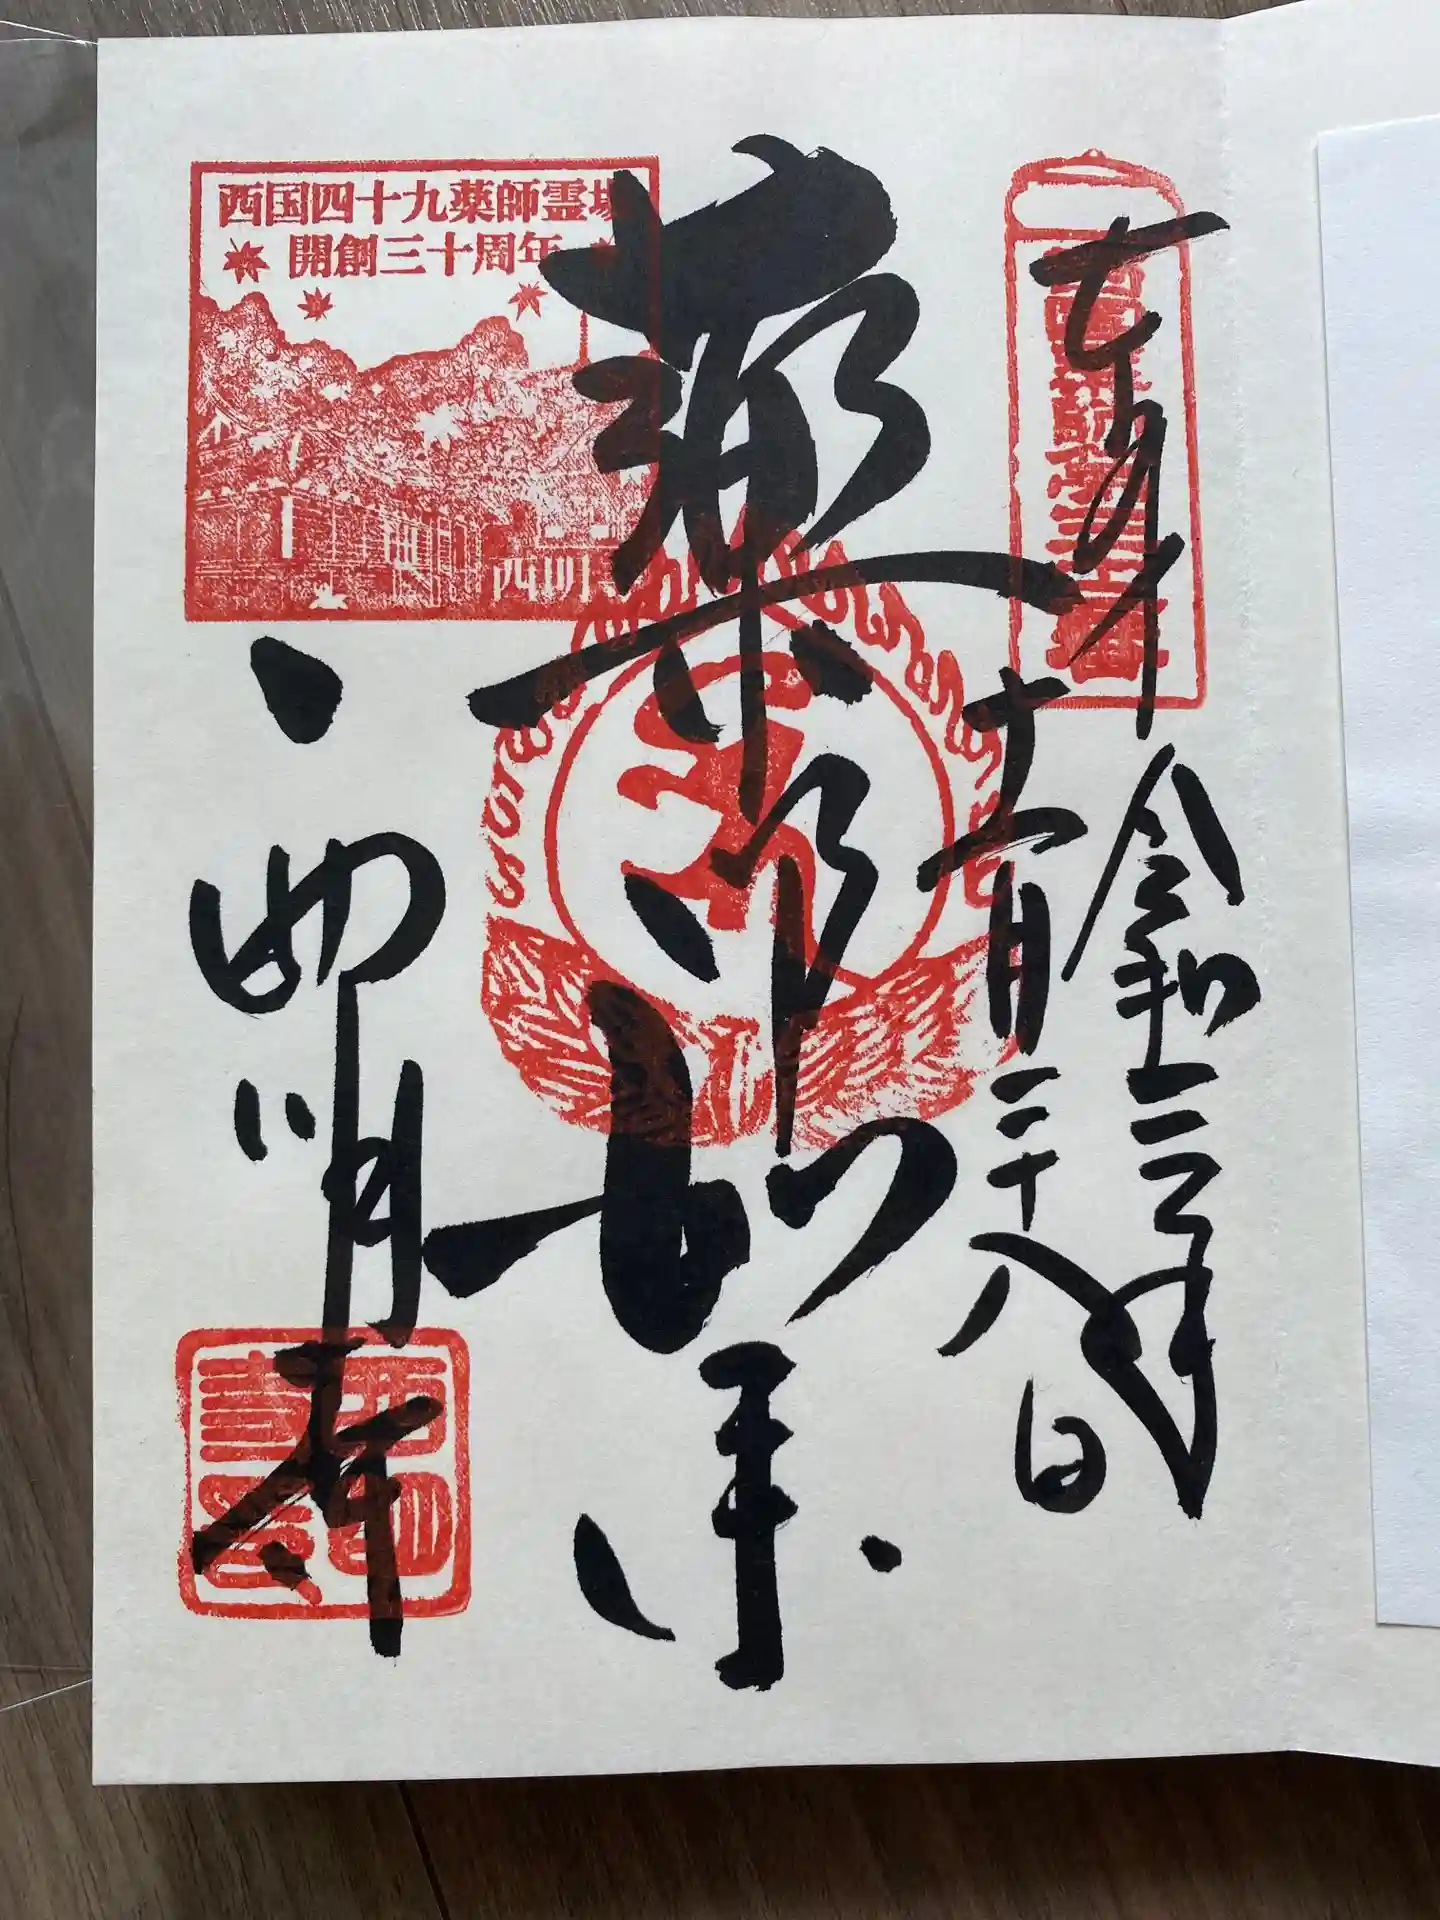 奉拝
令和二年
十一月二十八日
薬師如来
西明寺
西国四十九薬師霊場
開創三十周年
西明寺